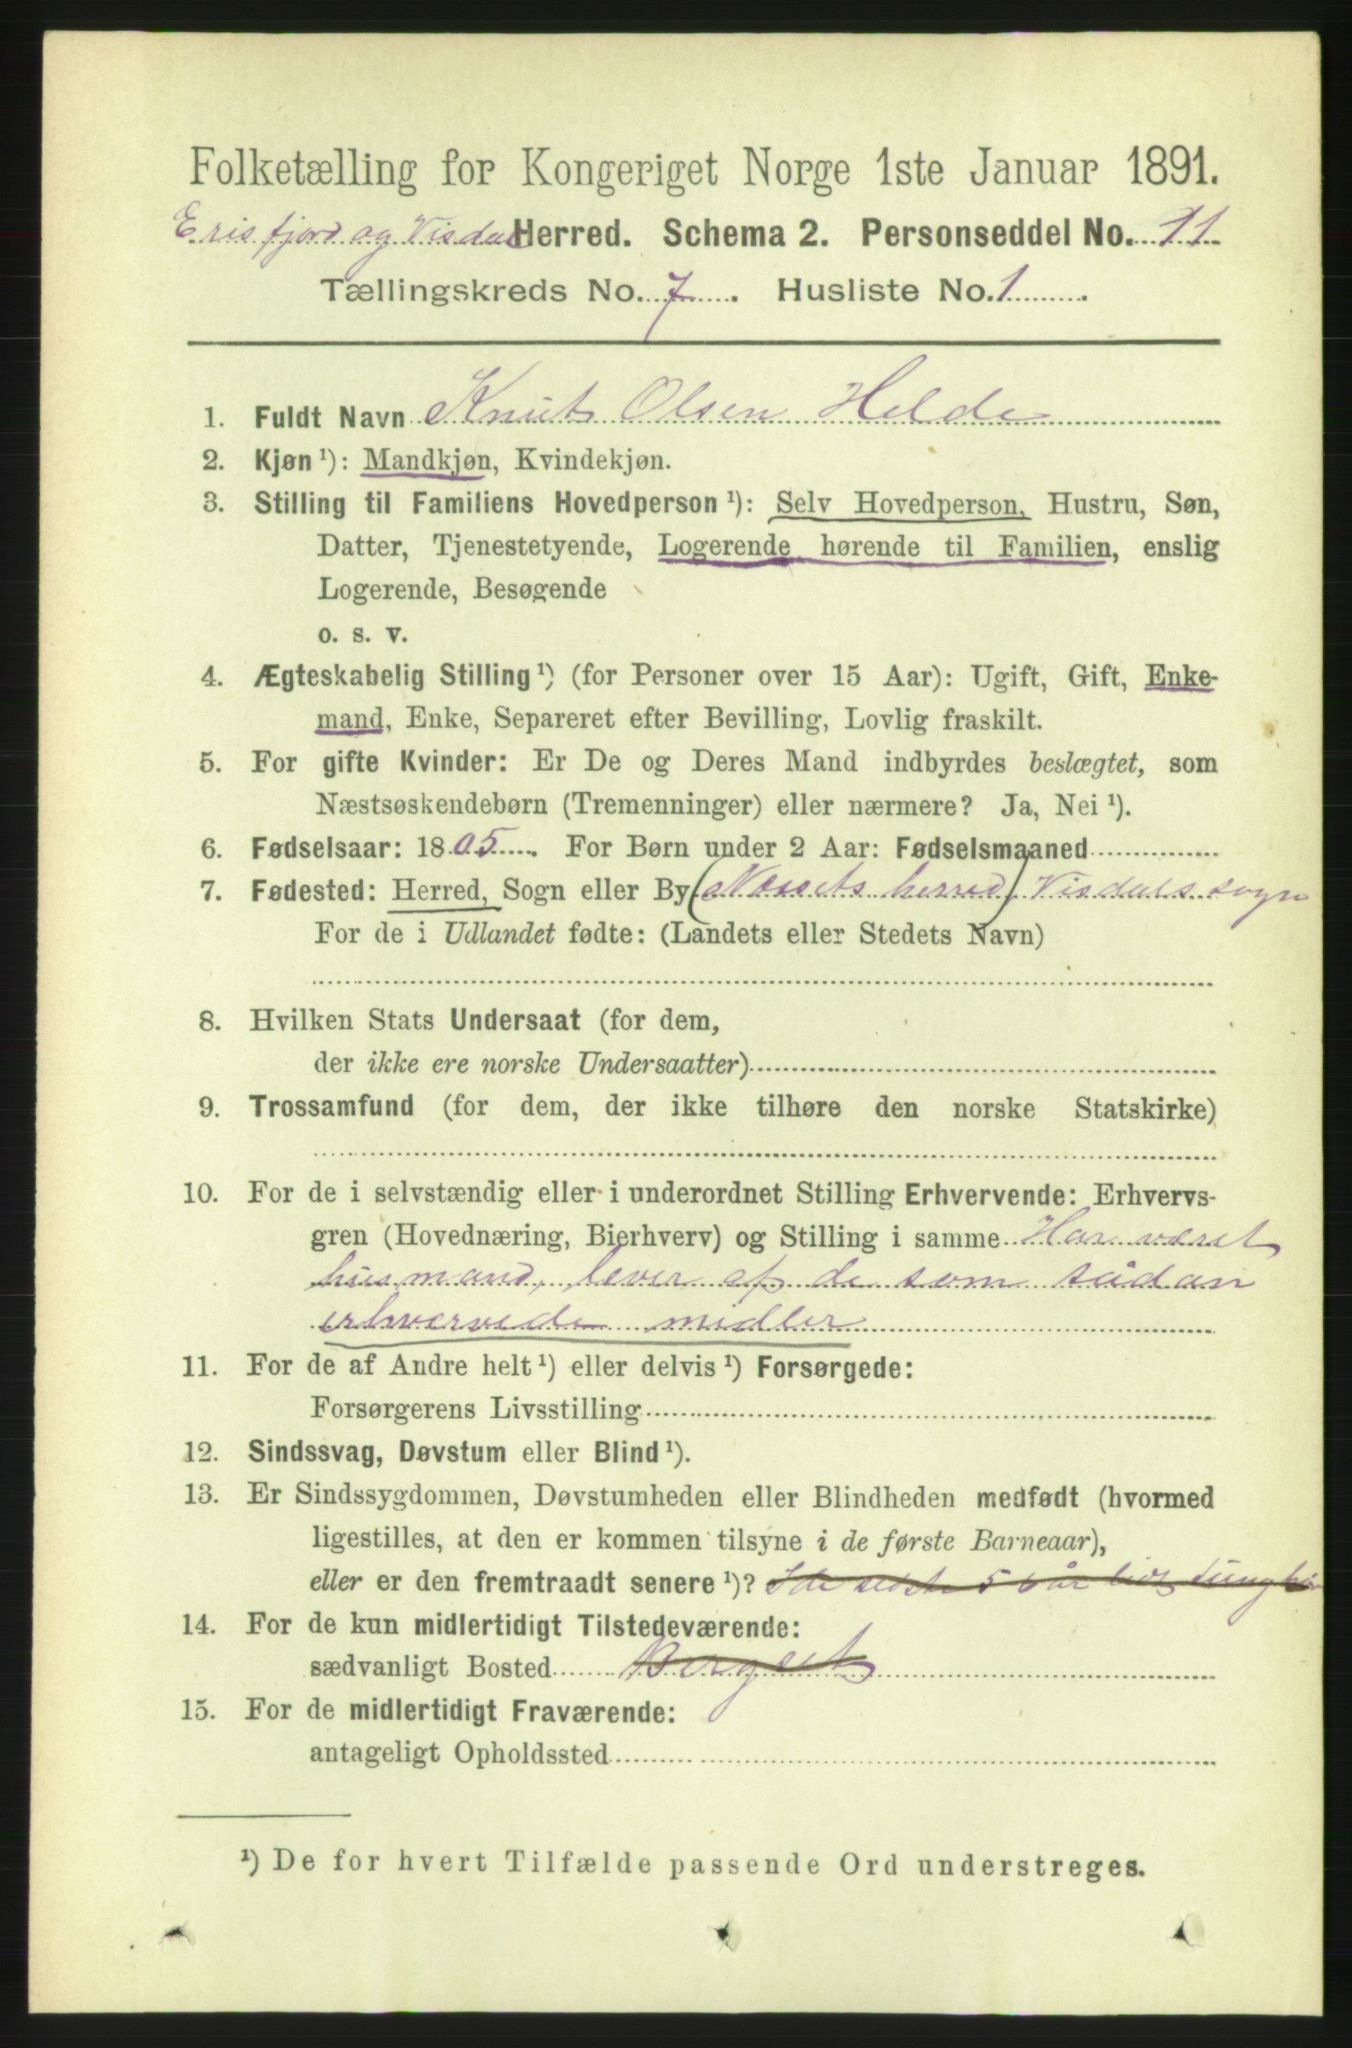 Folketælling for Kongeriget Norge 1ste Januar 1891.
Erisfjord og Visdal Herred. Schema 2. Personseddel No. 11
Tællingskreds No. 7. Husliste No. 1.
1. Fuldt Navn Knut Olsen Helde
2. Kjøn ¹): Mandkjøn, Kvindekjøn.
3. Stilling til Familiens Hovedperson ¹): Selv Hovedperson, Hustru, Søn,
Datter, Tjenestetyende, Logerende hørende til Familien, enslig
Logerende, Besøgende
o. s. v.
4. Ægteskabelig Stilling ¹) (for Personer over 15 Aar): Ugift, Gift, Enke-
mand, Enke, Separeret efter Bevilling, Lovlig fraskilt.
5. For gifte Kvinder: Er De og Deres Mand indbyrdes beslægtet, som
Næstsøskendebørn (Tremenninger) eller nærmere? Ja, Nei ¹).
6. Fødselsaar: 1805. For Børn under 2 Aar: Fødselsmaaned
7. Fødested: Herred, Sogn eller By (Nessets herred) Visdals sogn
For de i Udlandet fødte: (Landets eller Stedets Navn)
8. Hvilken Stats Undersaat (for dem,
der ikke ere norske Undersaatter)
9. Trossamfund (for dem, der ikke tilhøre den norske Statskirke)
10. For de i selvstændig eller i underordnet Stilling Erhvervende: Erhvervs-
gren (Hovednæring, Bierhverv) og Stilling i samme Har været
husmand, lever af de som sådan
erhvervede midler
11. For de af Andre helt ¹) eller delvis ¹) Forsørgede:
Forsørgerens Livsstilling
12. Sindssvag, Døvstum eller Blind ¹).
13. Er Sindssygdommen, Døvstumheden eller Blindheden medfødt (hvormed
ligestilles, at den er kommen tilsyne i de første Barneaar),
eller er den fremtraadt senere ¹)? I de sidste 5 år
14. For de kun midlertidigt Tilstedeværende:
sædvanligt Bosted Bergset
15. For de midlertidigt Fraværende:
antageligt Opholdssted
¹) De for hvert Tilfælde passende Ord understreges.